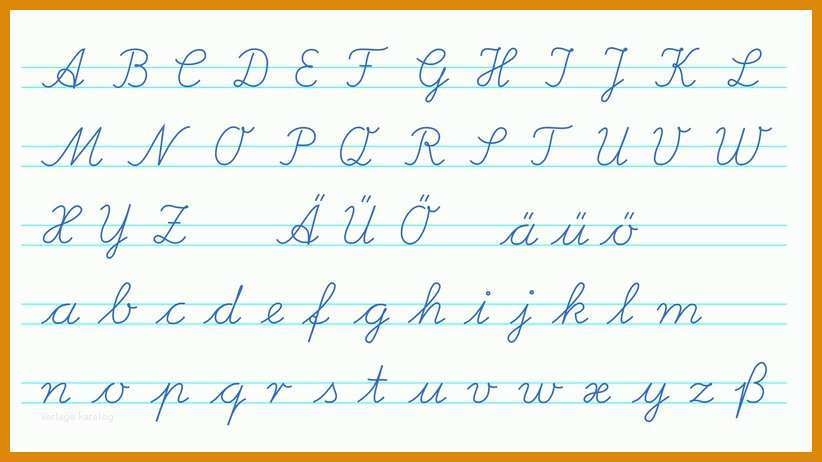 A B C D E F G H I J K L
M N O P Q R S T U V W
X Y Z Ä Ü Ö ä ü ö
a b c d e f g h i j k l m
n o p q r s t u v w x y z ß
vorlage katalog